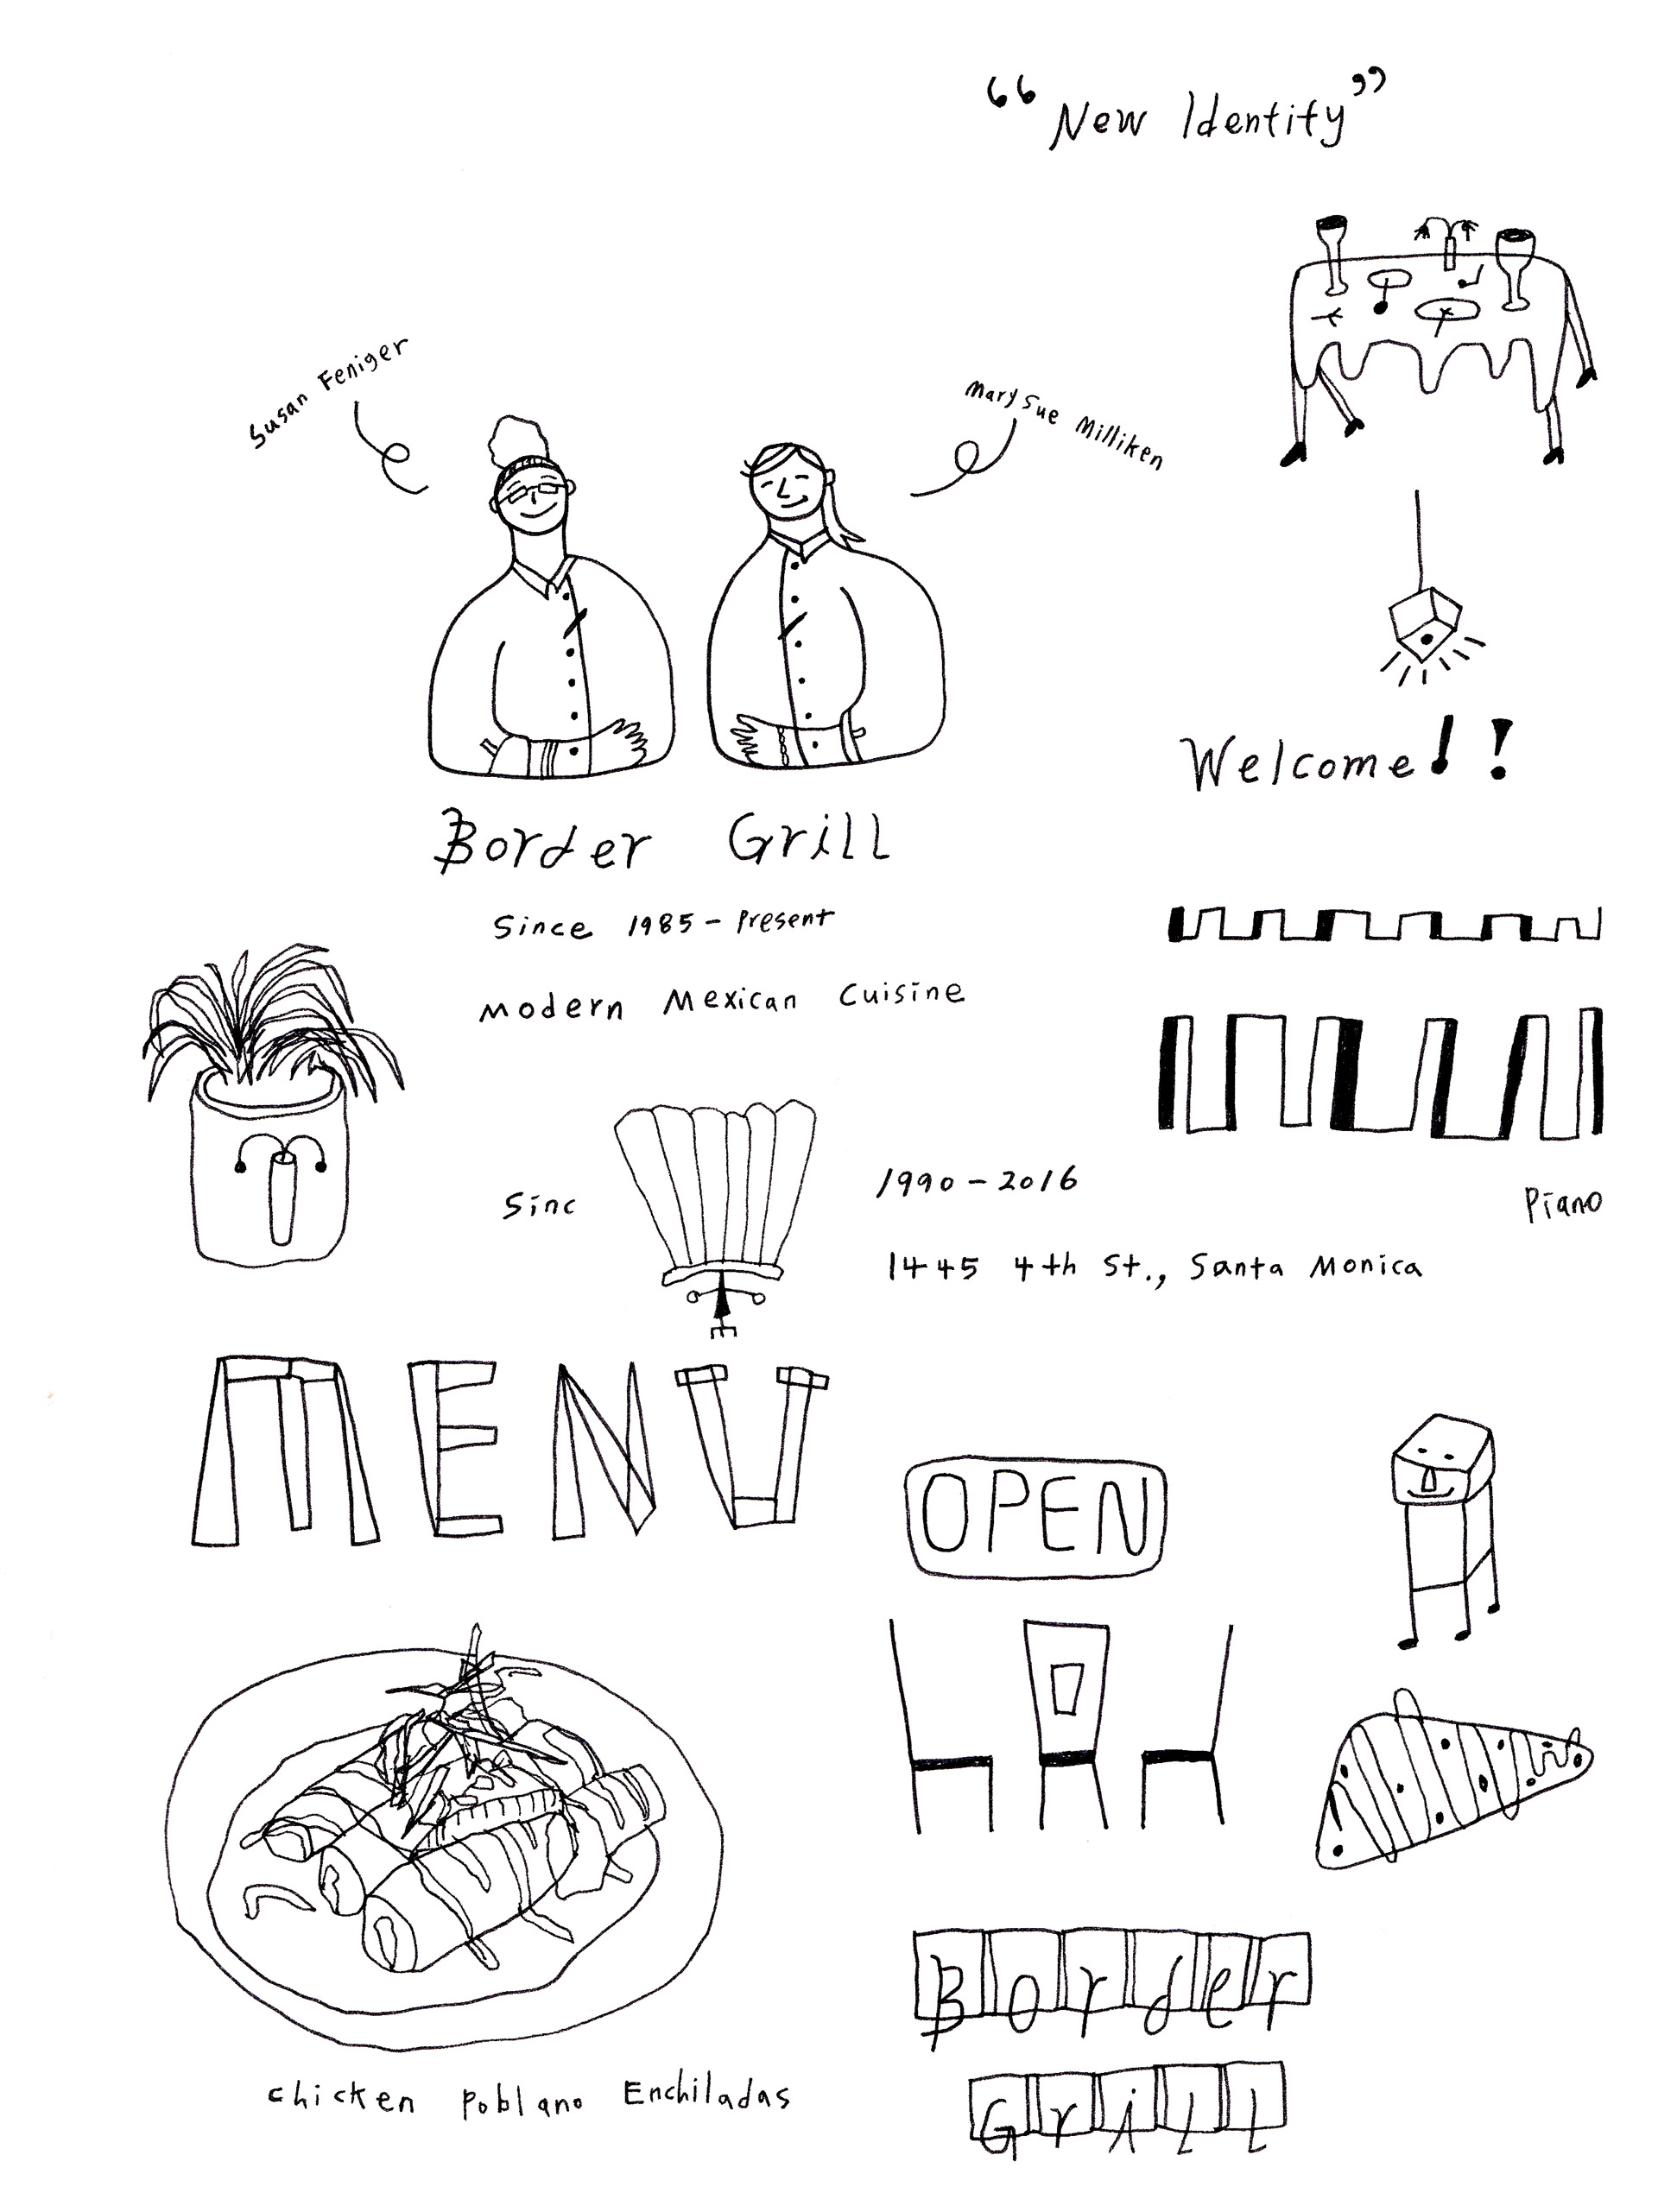 “New Identity”
Susan Feniger
Mary Sue Milliken
Welcome!!
Border Grill
Since 1985 - Present
Modern Mexican Cuisine
Sinc
1990 - 2016
Piano
1445 4th St., Santa Monica
MENU
OPEN
Border
Grill
Chicken Poblano Enchiladas